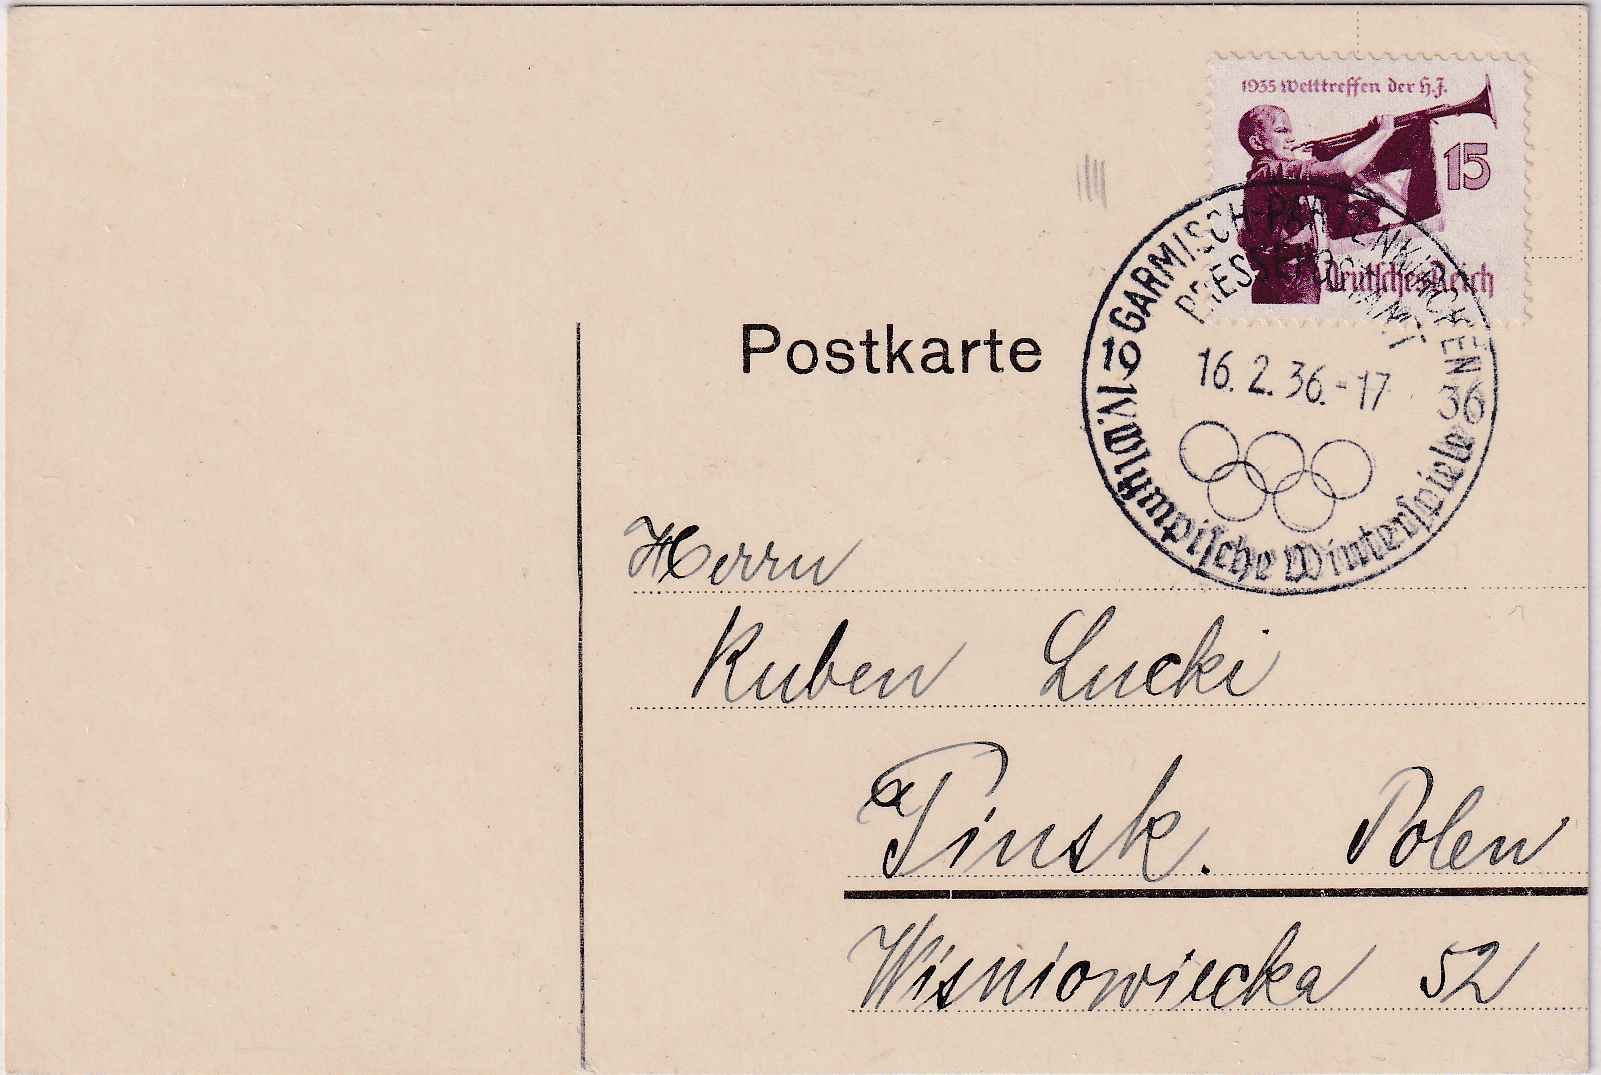 1935 Welttreffen der H.J.
15
Deutsches Reich
GARMISCH-PARTENKIRCHEN
PRESSEPOSTAMT
19 36
16.2.36.-17
IV. Olympische Winterspiele
Postkarte
Herrn
Ruben Lucki
Pinsk. Polen
Wisniowiecka 52